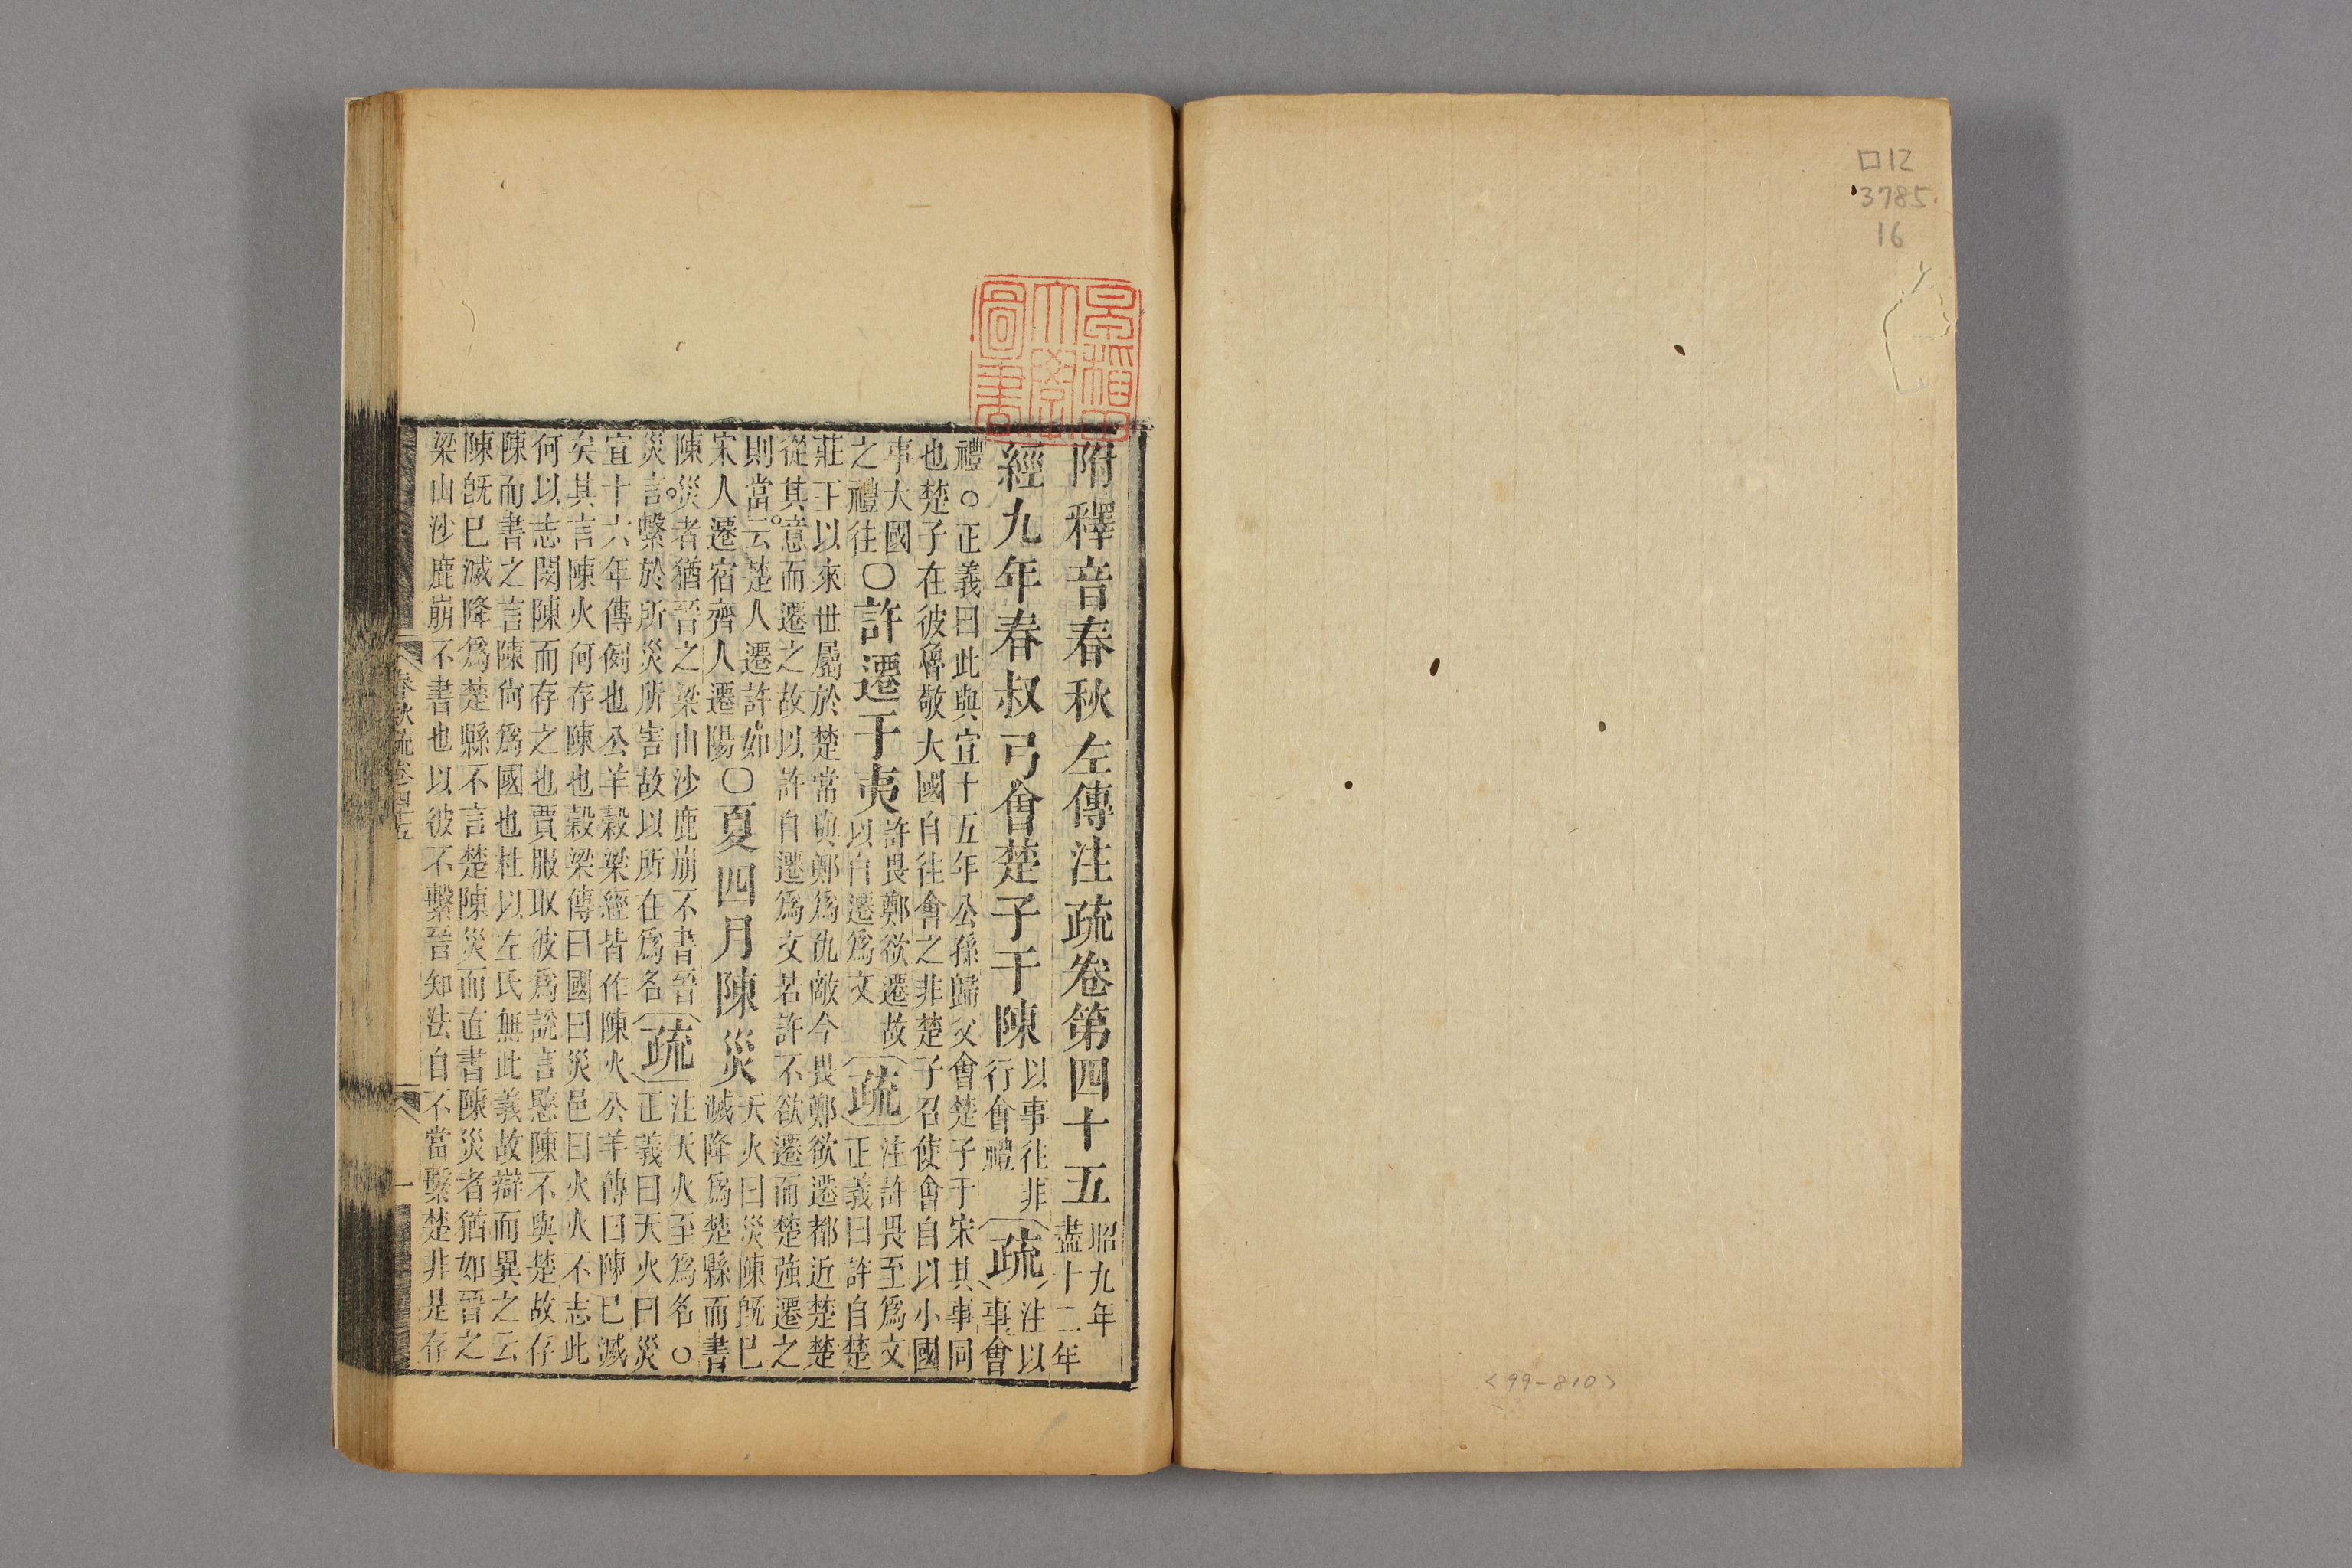 ロ12
3785
16
<99-810>
早稻田
大學
圖書
附釋音春秋左傳注疏卷第四十五
昭九年
盡十二年
經九年春叔弓會楚子于陳
以事往非
行會禮
疏
注以
事會
禮○正義曰此與宣十五年公孫歸父會楚子于宋其事同
也楚子在彼魯敬大國自往會之非楚子召使會自以小國
事大國
之禮往
○許遷于夷
許畏鄭欲遷故
以自遷爲文
疏
注許畏至爲文
正義曰許自楚
莊王以來世屬於楚常與鄭爲仇敵今畏鄭欲遷都近楚楚
從其意而遷之故以許自遷爲文若許不欲遷而楚強遷之
則當云楚人遷許如
宋人遷宿齊人遷陽
○夏四月陳災
天火曰災陳既已
滅降爲楚縣而書
陳災者猶晉之梁山沙鹿崩不書晉
災言繫於所災所害故以所在爲名
疏
注天火至爲名○
正義曰天火曰災
宣十六年傳例也公羊穀梁經皆作陳火公羊傳曰陳已滅
矣其言陳火何存陳也穀梁傳曰國曰災邑曰火火不志此
何以志閔陳而存之也賈服取彼爲說言愍陳不與楚故存
陳而書之言陳尚爲國也杜以左氏無此義故辯而異之云
陳既已滅降爲楚縣不言楚陳災而直書陳災者猶如晉之
梁山沙鹿崩不書也以彼不繫晉知法自不當繫楚非是存
春秋疏卷四十五
一